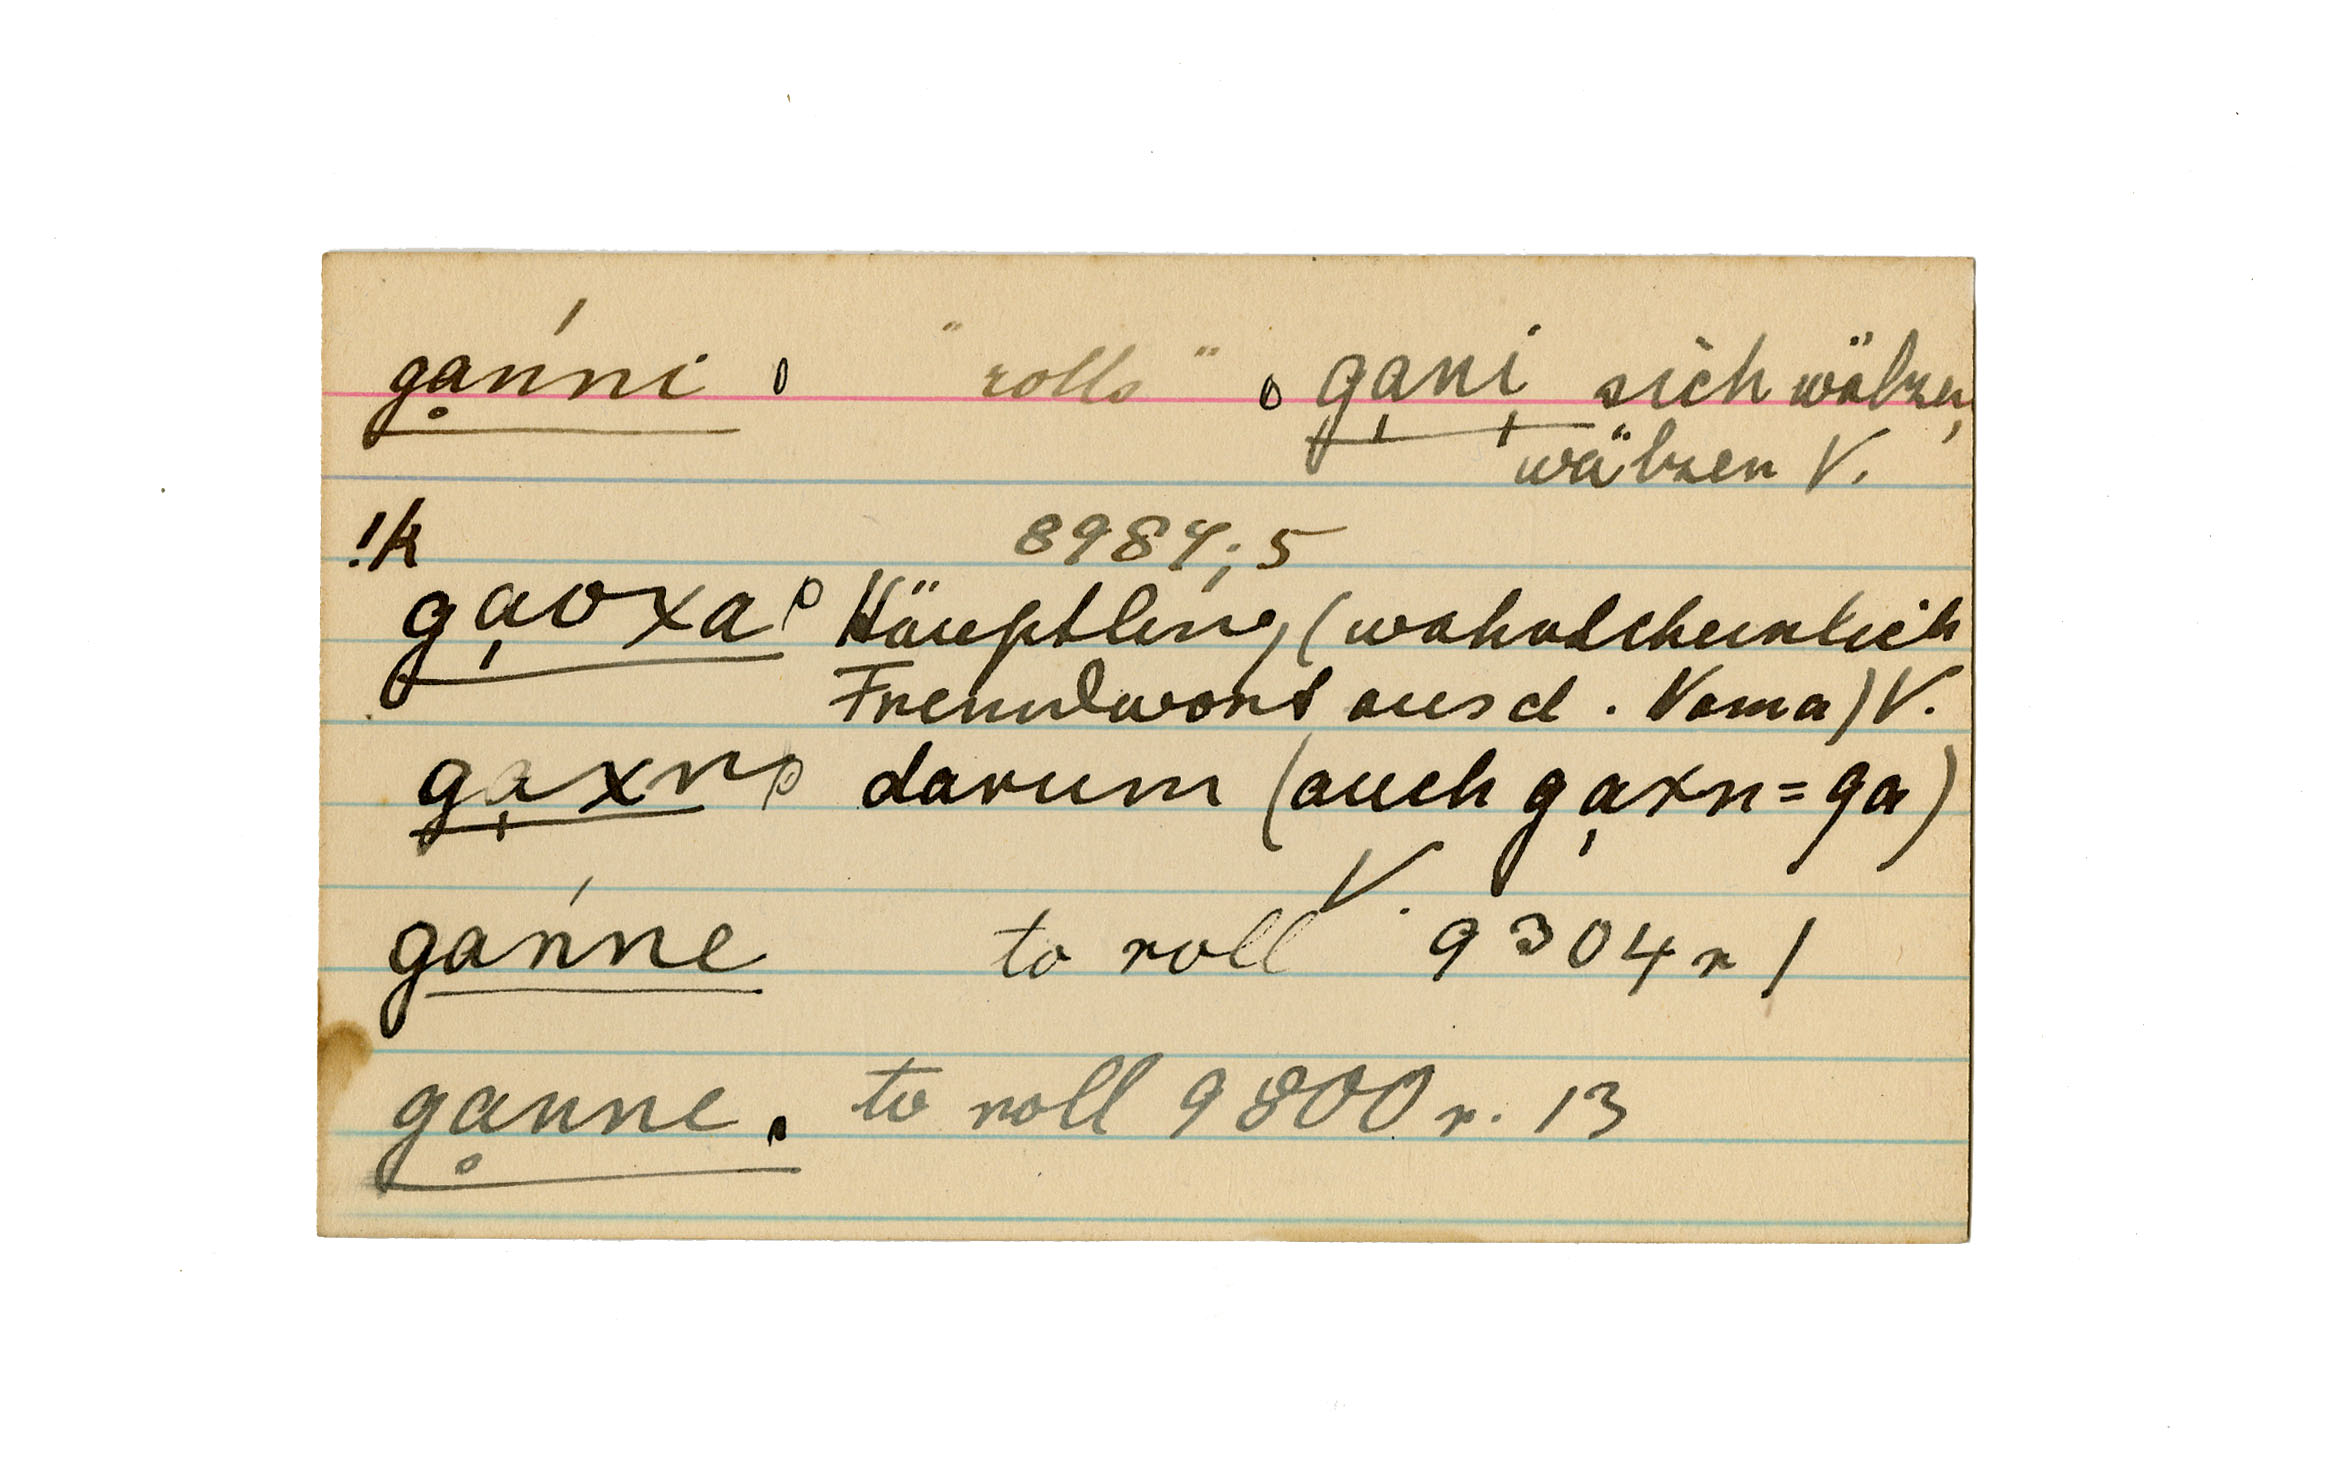 gḁńni, "rolls", ga̩ni̩ sich wälzen,
wälzen V.
!k 8984; 5
ga̩oxa, Häuptling (wahrscheinlich
Fremdwort aus d. Nama) V.
ga̩xn, darum (auch ga̩xn = ga)
V.
gańne to roll 9304 r /
gḁnne. to roll 9800 r. 13